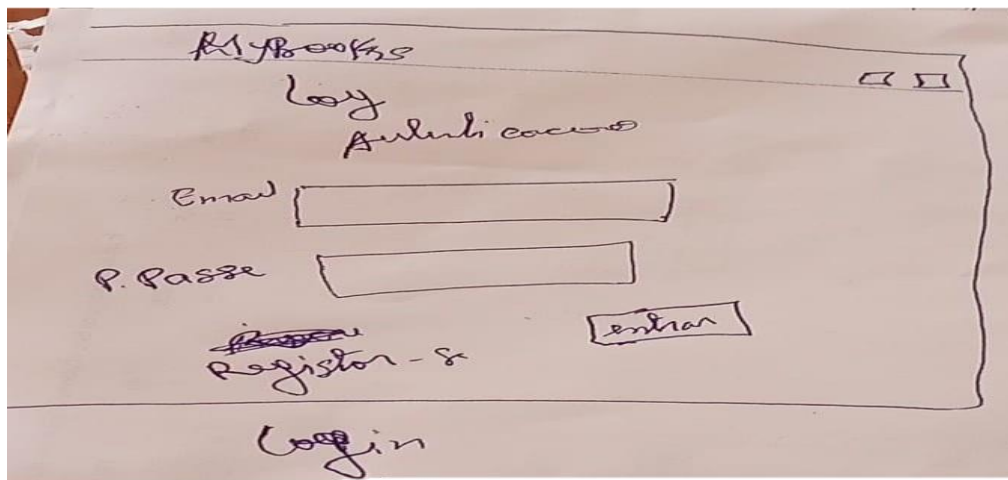 MyBooks
Log
Autenticacao
Email
P. Passe
entrar
Registar-se
Login